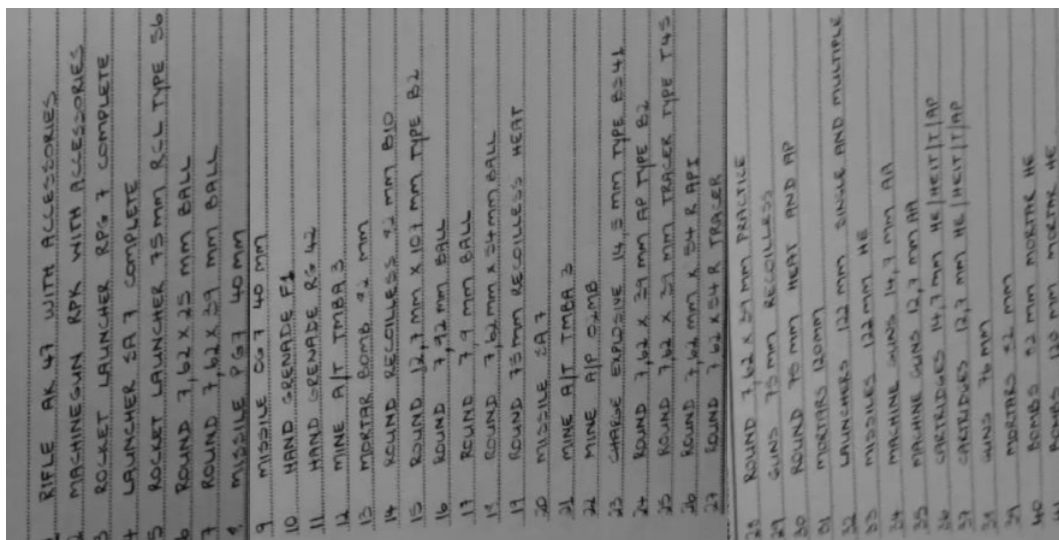 1 RIFLE AK 47 WITH ACCESSORIES
2 MACHINEGUN RPK WITH ACCESSORIES
3 ROCKET LAUNCHER RPG 7 COMPLETE
4 LAUNCHER SA 7 COMPLETE
5 ROCKET LAUNCHER 75 MM RCL TYPE 56
6 ROUND 7,62 X 25 MM BALL
7 ROUND 7,62 X 39 MM BALL
8 MISSILE PG7 40 MM
9 MISSILE OG7 40 MM
10 HAND GRENADE F1
11 HAND GRENADE RG 42
12 MINE A/T TMBA 3
13 MORTAR BOMB 82 MM
14 ROUND RECOILLESS 82 MM B10
15 ROUND 12,7 MM X 107 MM TYPE B2
16 ROUND 7,92 MM BALL
17 ROUND 7,9 MM BALL
18 ROUND 7,62 MM X 54 MM BALL
19 ROUND 75 MM RECOILLESS HEAT
20 MISSILE SA7
21 MINE A/T TMBA 3
22 MINE A/P
23 CHARGE EXPLOSIVE 14 5 MM TYPE BS41
24 ROUND 7,62 X 39 MM AP TYPE B2
25 ROUND 7,62 X 39 MM TRACER TYPE T45
26 ROUND 7,62 MM X 54 R API
27 ROUND 7,62 X 54 R TRACER
28 ROUND 7,62 X 39 MM PRACTICE
29 GUNS 75 MM RECOILLESS
30 ROUND 75 MM HEAT AND AP
31 MORTARS 120MM
32 LAUNCHERS 122 MM SINGLE AND MULTIPLE
33 MISSILES 122 MM HE
34 MACHINE GUNS 14,7 MM AA
35 MACHINE GUNS 12,7 MM AA
36 CARTRIDGES 14,7 MM HE/HEIT/T/AP
37 CARTRIDGES 12,7 MM HE/HEIT/T/AP
38 GUNS 76 MM
39 MORTARS 82 MM
40 BOMBS 82 MM MORTAR HE
BOMBS 120 MM MORTAR HE